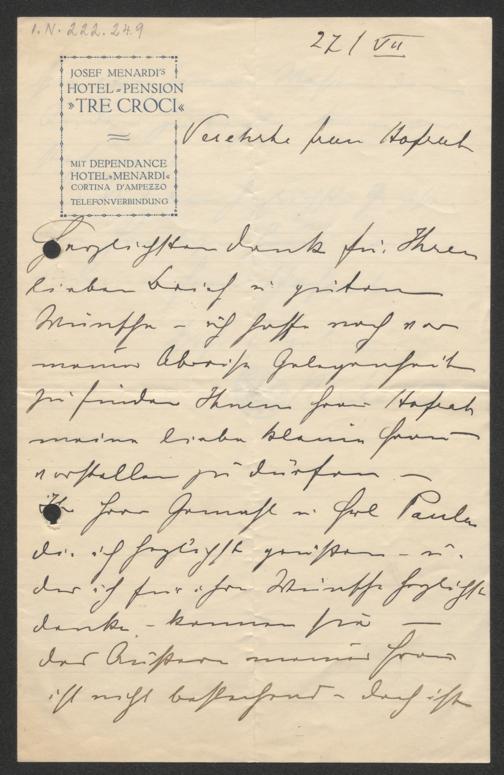 I.N. 222.249
27/VII
JOSEF MENARDI'S
HOTEL-PENSION
»TRE CROCI«
MIT DEPENDANCE
HOTEL»MENARDI«
CORTINA D'AMPEZZO
TELEFONVERBINDUNG
Verehrte frau Hofrat
Herzlichsten dank für Ihren
lieben brief u guten
Wünsche – ich hoffe noch vor
meiner Abreise Gelegenheit
zu finden Ihnen frau Hofrat
meine liebe kleine frau
vorstellen zu dürfen. —
Ihr Herr Gemahl u. Frl Paula
die ich herzlichst grüssen – u.
der ich für ihre Wünsche herzlichst
danke – kennen sie —
das Äußere meiner frau
ist nicht bestechend – doch ist